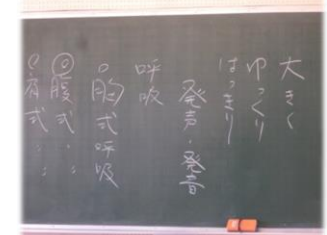 大きく
ゆっくり
はっきり
発声・発音
呼吸
○胸式呼吸
◎腹式〃〃
○肩式〃〃